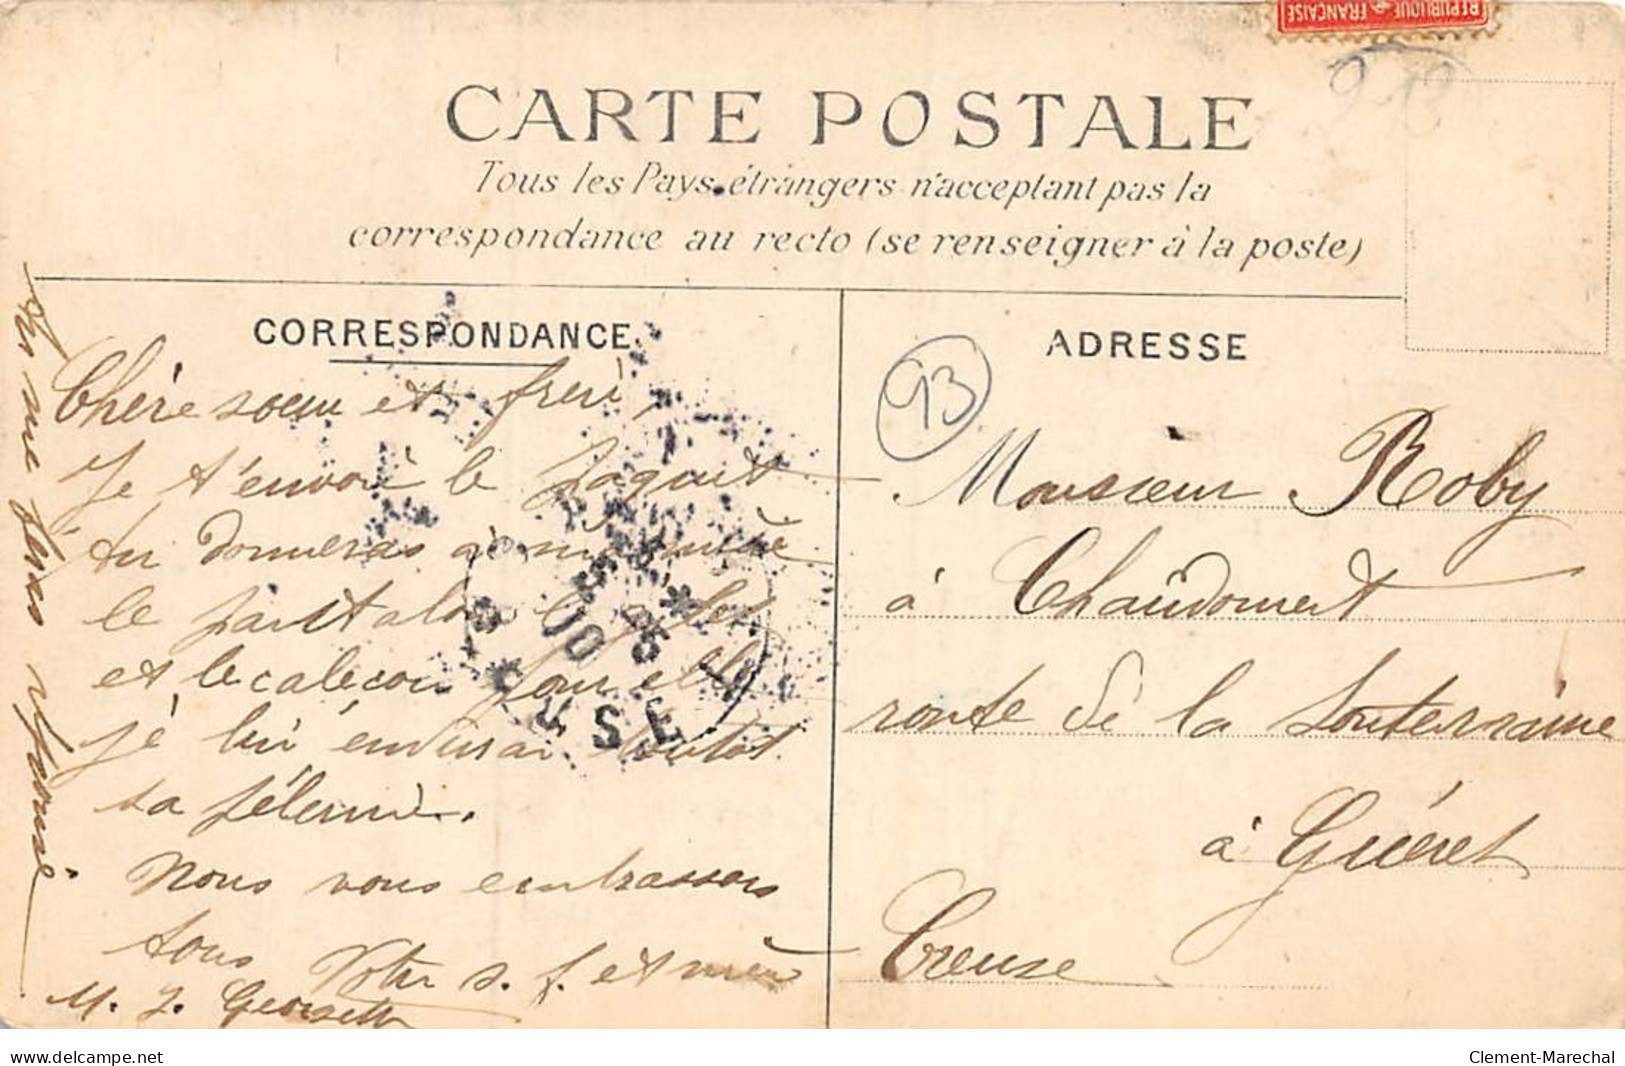 REPUBLIQUE FRANÇAISE
CARTE POSTALE
Tous les Pays étrangers n'acceptant pas la
correspondance au recto (se renseigner à la poste)
CORRESPONDANCE
Chère soeur et frere,
Je t'envoie le paquet
tu donneras à ma mère
le pantalon le gilet
et le caleçon pour elle
je lui enverrai tantot
sa pélerine.
Nous vous embrassons
tous Votre s. f. et
M. J. Georgette
tu me feras réponse
ADRESSE
93
Monsieur Roby
à Chaudomert
route de la Souterraine
à Guéret
Creuse
USE
delcampe.net
Clement-Marechal